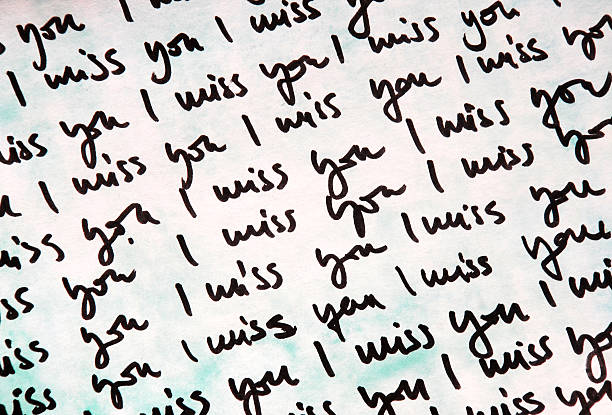 you I
I miss you I miss you
iss you I miss you I miss you I
I miss you I miss you I miss you
iss you I miss you I miss you
iss you I miss you I miss you
iss you I miss you I miss you
iss you I miss you I miss you
miss you I miss you I miss
you I miss you